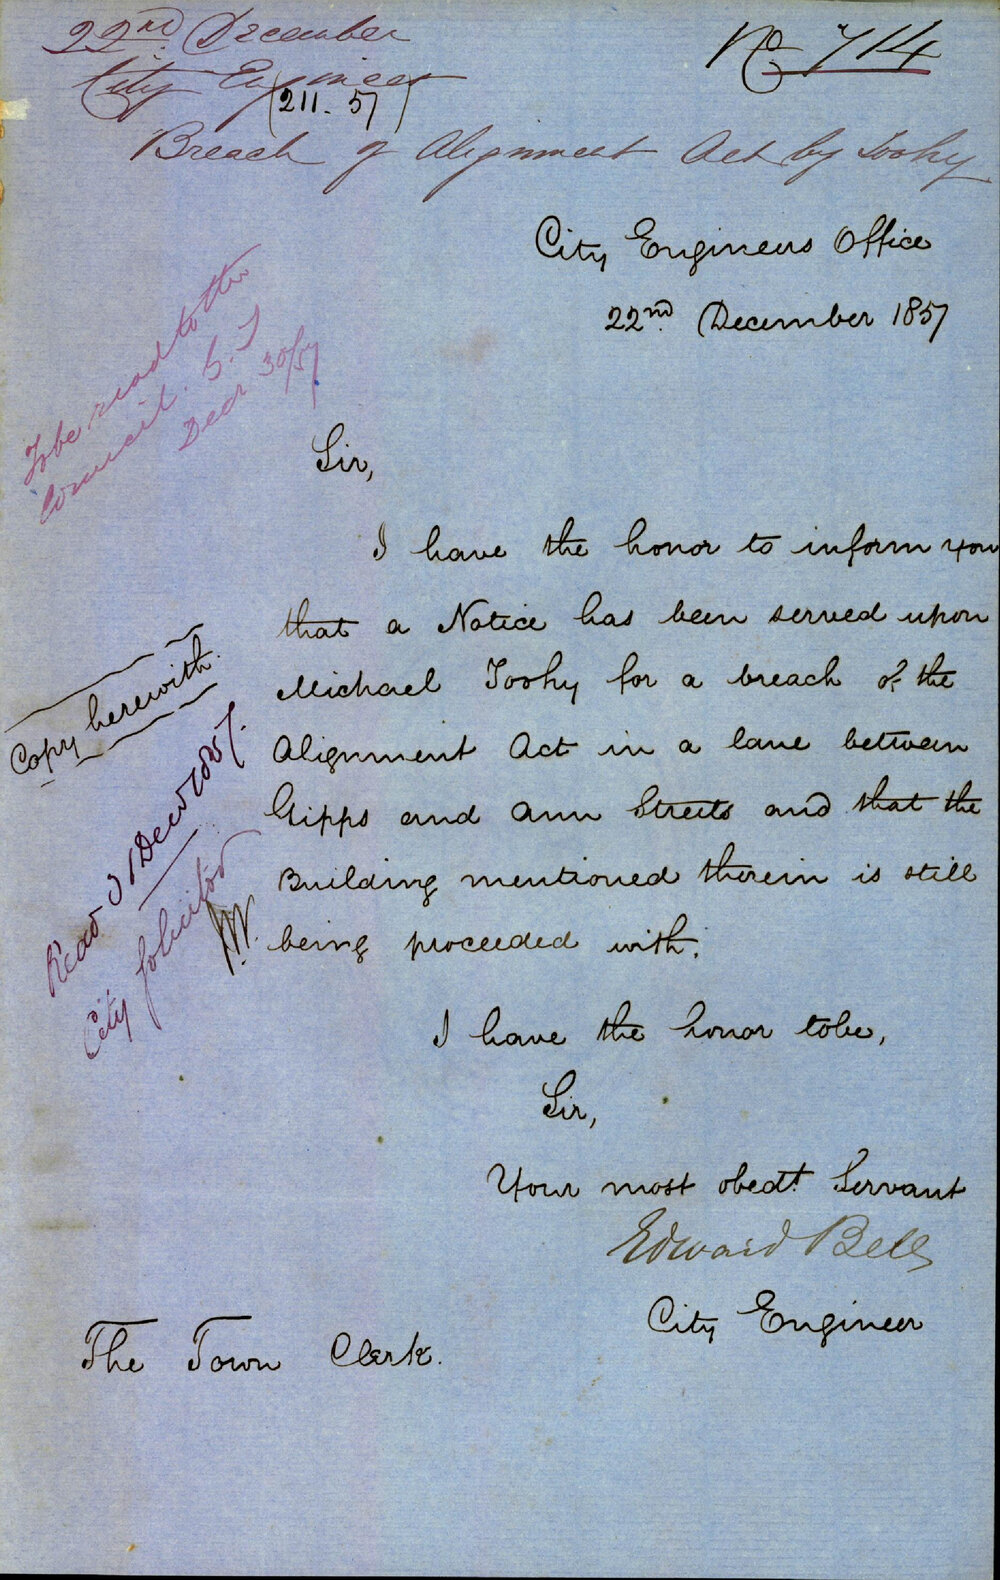 22nd December
No 714
City Engineer
(211. 57)
Breach of Alignment Act by Toohy
City Engineers Office
22nd December 1857
To be read to the
Council.
Decr 30/57
Sir,
I have the honor to inform you
that a Notice has been served upon
Michael Toohy for a breach of the
Alignment Act in a lane between
Gipps and Ann Streets and that the
Building mentioned therein is still
being proceeded with.
Copy herewith.
Read 31 Decr 1857.
City Solicitor
I have the honor to be,
Sir,
Your most obedt. Servant
Edward Bell
City Engineer
The Town Clerk.